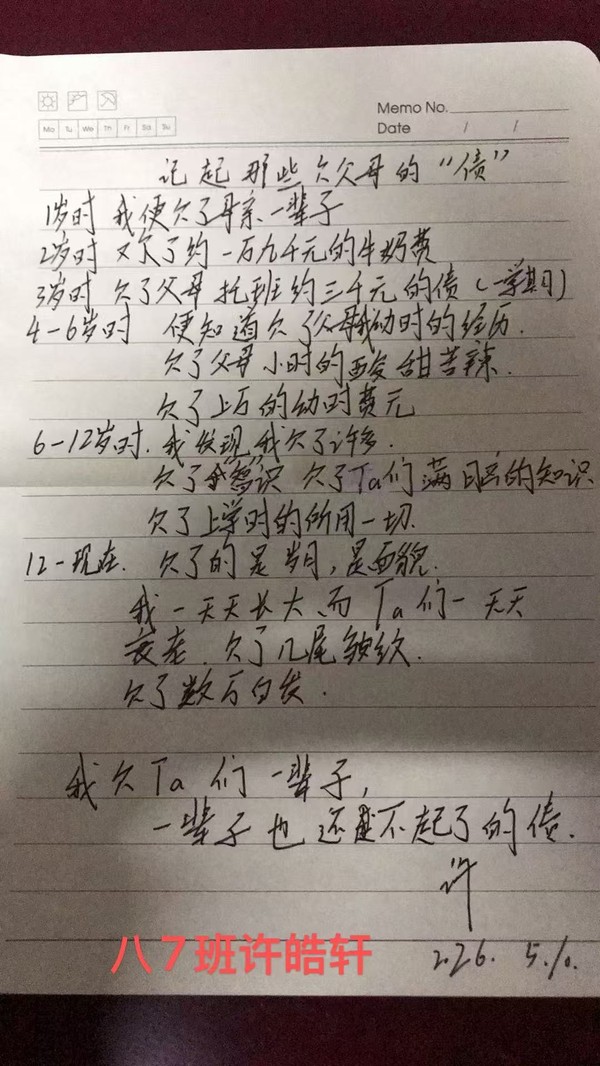 Memo No.
Mo Tu We Th Fr Sa Su
Date / /
记起那些欠父母的“债”
1岁时 我便欠了母亲一辈子
2岁时 又欠了约一万九千元的牛奶费
3岁时 欠了父母托班约三千元的债(一学期)
4-6岁时 便知道欠了父母我幼时的经历.
欠了父母小时的酸甜苦辣.
欠了上万的幼时费元
6-12岁时. 我发现 我欠了许多.
欠了 识 欠了Ta们满 的知识
欠了上学时的所用一切.
12-现在. 欠了的是岁月,是面貌.
我一天天长大,而Ta们一天天
衰老. 欠了几尾皱纹.
欠了数万白发.
我欠Ta们一辈子,
一辈子也还不起了的债.
许
2026. 5.10.
八7班许皓轩